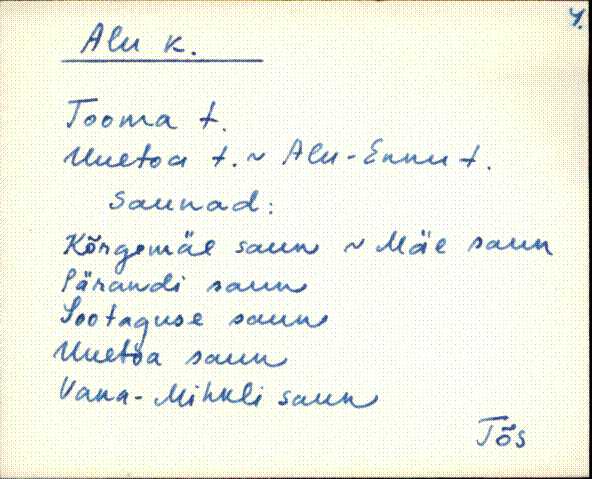 4.
Alu k.
Tooma t.
Uuetoa t. ~ Alu-Ennu t.
Saunad:
Kõrgemäe saun ~ Mäe saun
Pärandi saun
Sootaguse saun
Uuetoa saun
Vana-Mihkli saun
Tõs